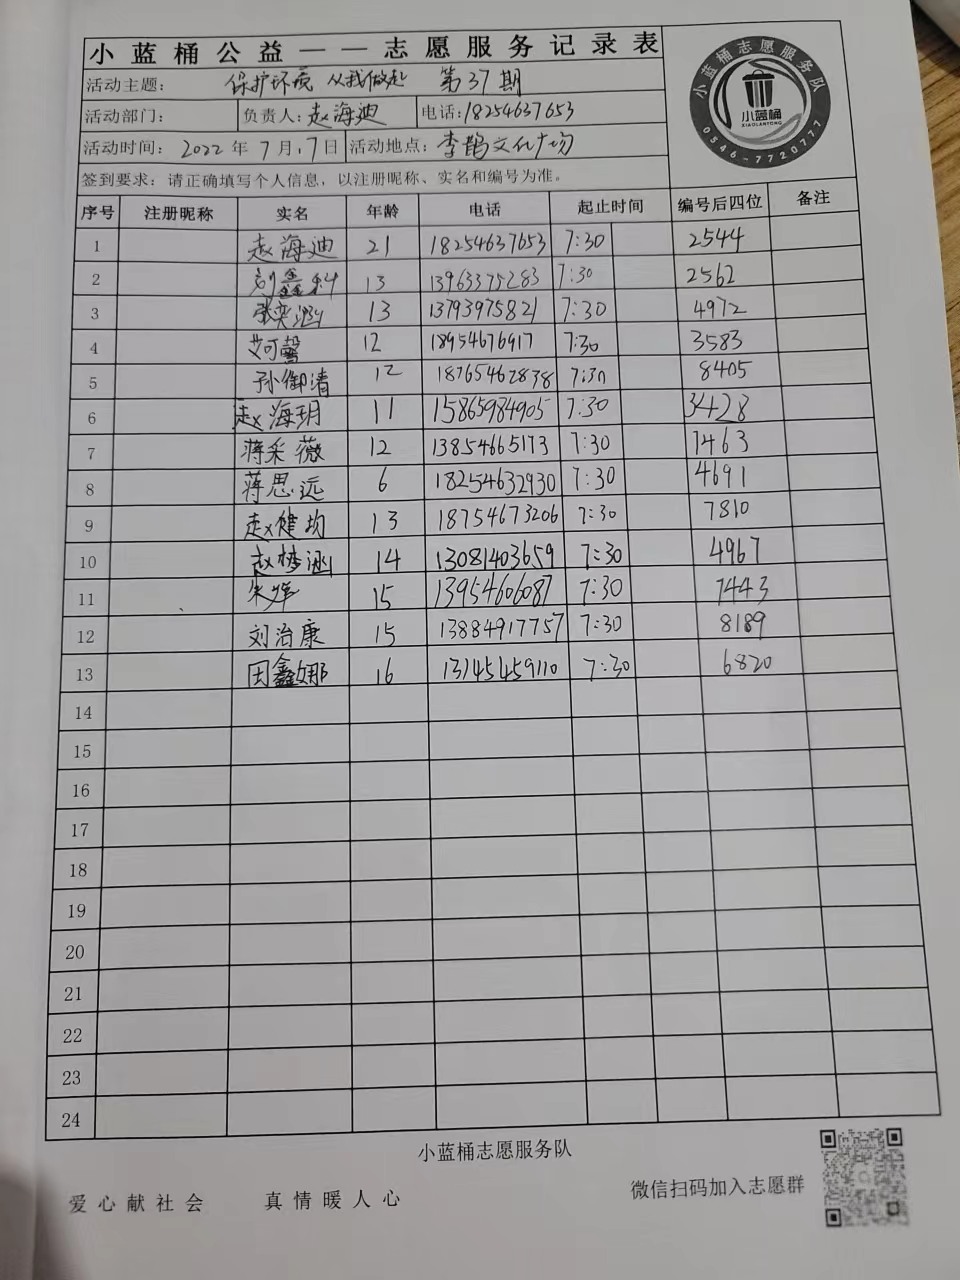 小蓝桶公益——志愿服务记录表
活动主题： 保护环境 从我做起 第37期
活动部门： 负责人：赵海迪 电话：18254637653
活动时间： 2022年7月17日 活动地点：李鹊文化广场
签到要求：请正确填写个人信息，以注册昵称、实名和编号为准。
小蓝桶志愿服务队
小蓝桶
XIAOLANTONG
0546-7720777
序号 注册昵称 实名 年龄 电话 起止时间 编号后四位 备注
1 赵海迪 21 18254637653 7:30 2544
2 刘鑫利 13 13963375283 7:30 2562
3 张奕涵 13 13793975821 7:30 4972
4 艾可馨 12 18954676917 7:30 3583
5 孙御清 12 18765462838 7:30 8405
6 赵海玥 11 15865984905 7:30 3428
7 蒋采薇 12 13854665173 7:30 7463
8 蒋思远 6 18254632930 7:30 4691
9 赵健均 13 18754673206 7:30 7810
10 赵梦涵 14 13081403659 7:30 4967
11 15 13954606087 7:30 7443
12 刘治康 15 13884917757 7:30 8189
13 田鑫娜 16 13145459110 7:30 6820
14
15
16
17
18
19
20
21
22
23
24
小蓝桶志愿服务队
爱心献社会 真情暖人心 微信扫码加入志愿群